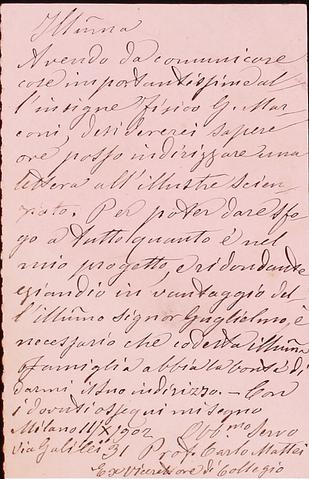 Illũma
Avendo da comunicare
cose importantissime al
l'insigne fisico G. Mar
coni, desidererei sapere
ove posso indirizzare una
lettera all'illustre scien
ziato. Per poter dare sfo
go a tutto quanto è nel
mio progetto, e ridondante
eziandio in vantaggio del
l'illũmo signor Guglielmo, è
necessario che codesta illũma
famiglia abbia la bontà di
darmi il suo indirizzo. — Con
i dovuti ossequi mi segno
Milano 11/X 1902 Obb.mo Servo
Via Galilei 31 Prof. Carlo Mattei
Ex Vicerettore di Collegio